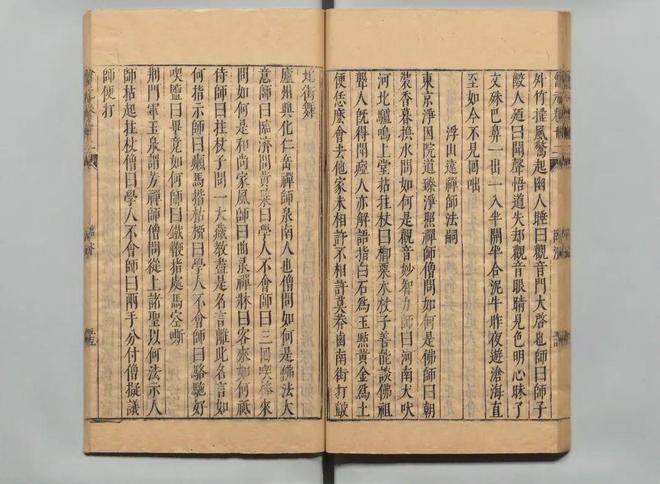 外竹搖風驚起幽人睡曰觀音門大啓也師曰師子
齩人廼曰聞聲悟道失却觀音眼睛見色明心昧了
文殊巴鼻一出一入半開半合泥牛昨夜遊滄海直
至如今不見回咄
浮山遠禪師法嗣
東京淨因院道臻淨照禪師僧問如何是佛師曰朝
裝香暮換水問如何是觀音妙智力師曰河南犬吠
河北驢鳴上堂拈拄杖曰楖栗木杖子善能談佛祖
聾人旣得聞瘂人亦解語指白石爲玉點黃金爲土
便恁麽會去他家未相許不相許莫莽鹵南街打皷
北街舞
廬州興化仁岳禪師泉南人也僧問如何是佛法大
意師曰臨濟問黃蘗曰學人不會師曰三回喫棒來
問如何是和尚家風師曰曲彔禪牀曰客來如何祗
侍師曰拄杖子問一大藏敎盡是名言離此名言如
何指示師曰癩馬揩枯柳曰學人不會師曰駱駝好
喫鹽曰畢竟如何師曰鐵鞭指處馬空嘶
荆門軍玉泉謂芳禪師僧問從上諸聖以何法示人
師拈起拄杖僧曰學人不會師曰兩手分付僧擬議
師便打